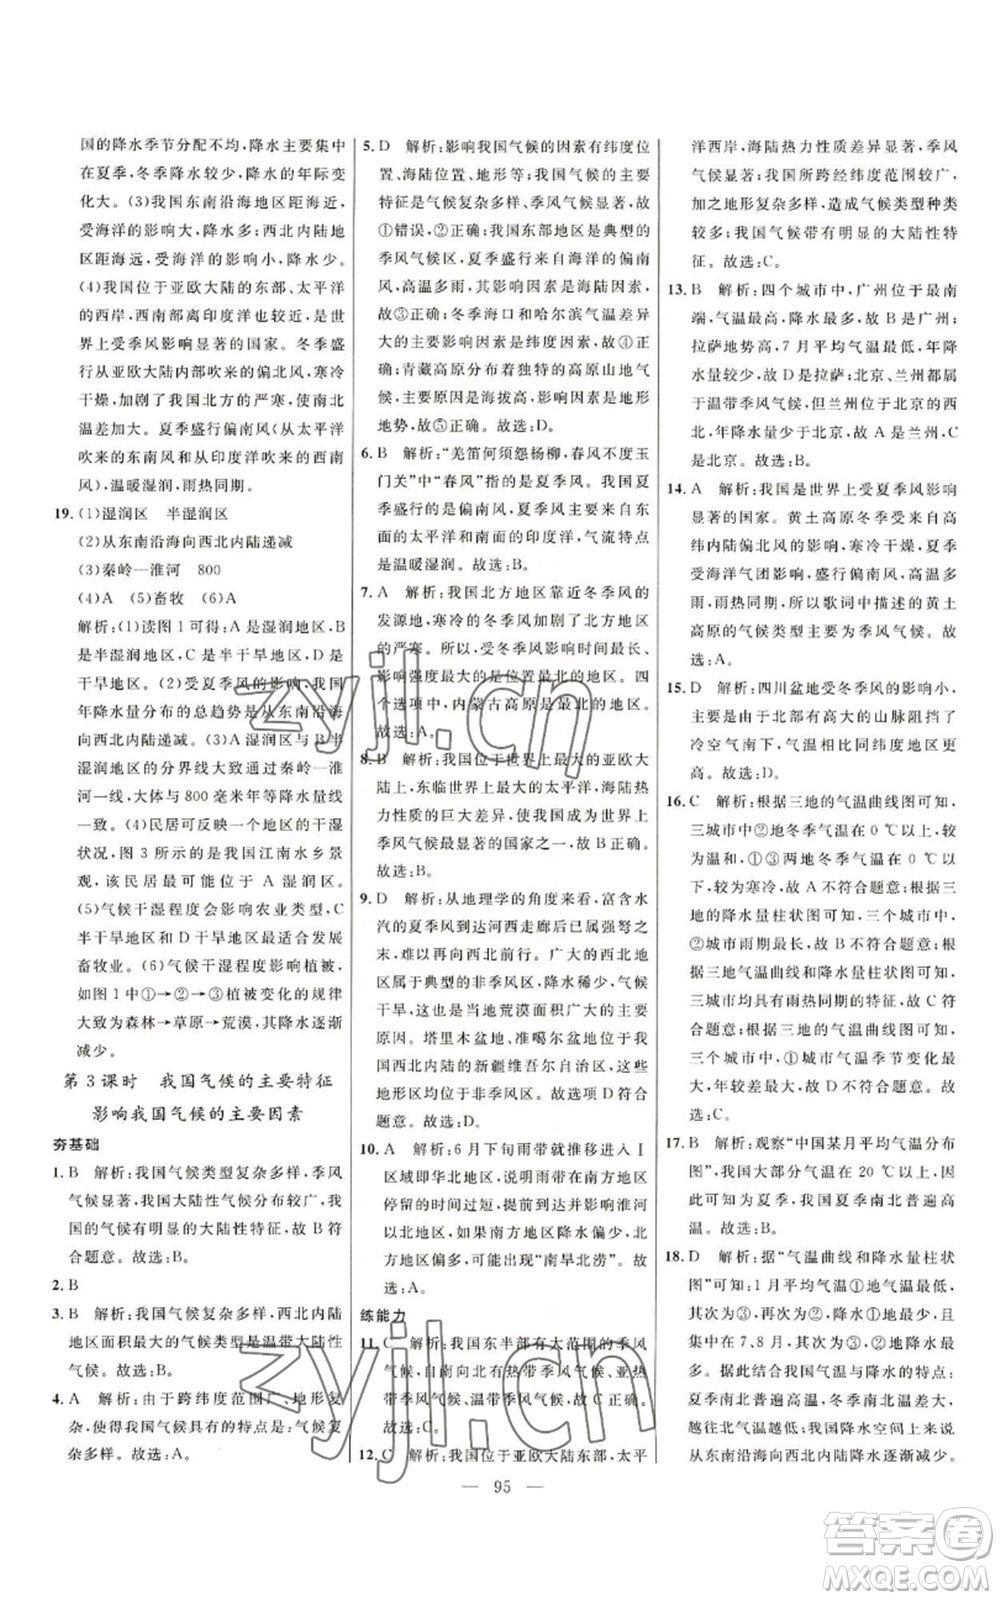 国的降水季节分配不均,降水主要集中
在夏季,冬季降水较少,降水的年际变
化大。(3)我国东南沿海地区距海洋近,
受海洋的影响大,降水多;西北内陆地
区距海远,受海洋的影响小,降水少。
(4)我国位于亚欧大陆的东部、太平洋
的西岸,西南部离印度洋也较近,是世
界上受季风影响显著的国家。冬季盛
行从亚欧大陆内部吹来的偏北风,寒冷
干燥,加剧了我国北方的严寒,使南北
温差加大。夏季盛行偏南风(从太平洋
吹来的东南风和从印度洋吹来的西南
风),温暖湿润,雨热同期。
19. (1)湿润区 半湿润区
(2)从东南沿海向西北内陆递减
(3)秦岭—淮河 800
(4)A (5)畜牧 (6)A
解析:(1)读图 1 可得:A 是湿润地区,B
是半湿润地区,C 是半干旱地区,D 是
干旱地区。(2)受夏季风的影响,我国
年降水量分布的总趋势是从东南沿海
向西北内陆递减。(3)A 湿润区与 B 半
湿润地区的分界线大致通过秦岭—淮
河一线,大体与 800 毫米年等降水量线
一致。(4)民居可反映一个地区的干湿
状况,图 3 所示的是我国江南水乡景
观,该民居最可能位于 A 湿润区。
(5)气候干湿程度影响农业类型,C
半干旱地区和 D 干旱地区适合发展
畜牧业。(6)气候干湿程度影响植被,
如图 1 中①→②→③植被变化的规律
大致为森林→草原→荒漠,其降水逐渐
减少。
第 3 课时 我国气候的主要特征
影响我国气候的主要因素
夯基础
1. B 解析:我国气候类型复杂多样,季风
气候显著,我国大陆性气候分布较广,我
国的气候有明显的大陆性特征,故 B 符
合题意。故选:B。
2. B
3. B 解析:我国气候复杂多样,西北内陆
地区面积最大的气候类型是温带大陆性
气候。故选:B。
4. A 解析:由于跨纬度范围广、地形复
杂,使得我国气候具有的特点是:气候
复杂多样。故选:A。
5. D 解析:影响我国气候的因素有纬度位
置、海陆位置、地形等;我国气候的主要
特征是气候复杂多样、季风气候显著,故
①错误,②正确;我国东部地区是典型的
季风气候区。夏季盛行来自海洋的偏南
风,高温多雨,影响因素是海陆因素,
故③正确;冬季海口和哈尔滨气温差异
大的主要影响因素是纬度因素,故④正
确;青藏高原分布着独特的高原山地气
候,主要原因是海拔高,影响因素是地形
地势,故⑤正确。故选:D。
6. B 解析:“羌笛何须怨杨柳,春风不度玉
门关”中“春风”指的是夏季风。夏季风
影响我国的东部地区,它来自我国东
面的太平洋和南面的印度洋,气流特点
是温暖湿润。故选:B。
7. A 解析:我国北方地区靠近冬季风的
发源地,寒冷的冬季风加剧了北方地区
的严寒。所以,受冬季风影响时间最长、
影响强度最大的是位置最北的地区。
四个选项中,内蒙古高原是最北的地区。
故选:A。
8. B 解析:我国位于世界上最大的亚欧大
陆上,东临世界上最大的太平洋,海陆热
力性质的巨大差异,使我国成为世界上
季风气候最显著的国家之一。故选:B。
9. D 解析:从地理学的角度来看,富含水
汽的夏季风到达河西走廊后已属强弩之
末,难以再向西北前行。广大的西北地区
属于典型的非季风区,降水稀少,荒漠
广布,这也是当地荒漠面积广大的主
要原因。塔里木盆地、准噶尔盆地位于
我国西北内陆的新疆维吾尔自治区,属
于典型的非季风区。故选项 D 符合
题意。故选:D。
10. A 解析:6 月下旬雨带就推移进入 I
区域即华北地区,说明雨带在南方地区
停留的时间过短,提前到达并影响淮河
以北地区,如果南方地区降水偏少,北
方地区偏多,可能出现“南旱北涝”。故
选:A。
练能力
11. C 解析:我国东半部有大范围的季风
气候,自南向北有热带季风气候、亚热
带季风气候、温带季风气候,故 C 正确。
故选:C。
12. C 解析:我国位于亚欧大陆东部、太平
洋西岸,海陆热力性质差异显著,季风
显著;我国所跨经纬度范围较广,
加之地形复杂多样,造成气候类型种类
较多;我国气候带有明显的大陆性特
征。故选:C。
13. B 解析:四个城市中,广州位于最南
端,气温最高,降水最多,故 B 是广州;
拉萨地势高,7 月平均气温最低,年降
水量较少,故 D 是拉萨;北京、兰州都
属于温带季风气候,但兰州位于最西
边,年降水量少于北京,故 A 是兰州,C
是北京。故选:B。
14. A 解析:我国是世界上受夏季风影响
显著的国家。黄土高原冬季受来自高
纬内陆偏北风的影响,寒冷干燥,夏季
受海洋气团影响,盛行偏南风,高温多
雨,雨热同期。所以歌词中所描述的黄土
高原的气候类型主要为季风气候。故
选:A。
15. D 解析:四川盆地受冬季风的影响小,
主要是由于北部有高大的山脉阻挡了
冷空气南下,气温比同纬度地区更
高。故选:D。
16. C 解析:根据三地的气温曲线图可知,
三城市中②地冬季气温在 0 ℃以上,较
为温和,①③两地冬季气温在 0 ℃以
下,较为寒冷,故 A 不符合题意;根据三
地的降水量柱状图可知,三个城市中,③
城市雨期最长,故 B 不符合题意;根
据三地气温曲线和降水量柱状图可知,
三城市均具有雨热同期的特征,故 C 符
合题意;根据三地的气温曲线图可知,
三个城市中,①城市气温季节变化最大,
即气温年较差最大,故 D 不符合题意。
故选:C。
17. B 解析:观察“中国某月平均气温分布
图”,我国大部分气温在 20 ℃以上,
因此可知为夏季,我国夏季南北普遍高
温。故选:B。
18. D 解析:据“气温曲线和降水量柱状
图”可知:1 月平均气温①地气温最低,
其次为③,再次为②,降水①地最少,且
集中在 7、8 月,其次为③,②地降水最
多。据此结合我国气温与降水的特点:
夏季南北普遍高温,冬季南北温差大,
越往北气温越低,降水空间分布上大致
从东南沿海向西北内陆逐渐减少。
— 95 —
zyjl.cn
zyjl.cn
答案圈
MXQE.COM